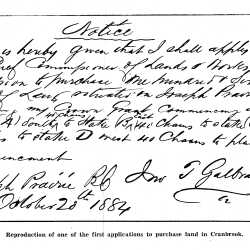 Notice
is hereby given that I shall apply
Chief Commissioner of Lands & Works
to purchase one hundred &
of Land situated on Joseph Prairie
my Crown Grant Commencing
South to Stake B 40 Chains to stake C
to stake D west 40 Chains to place
encement
ph Prairie BC Jno T Galbra
October 20th 1884
Reproduction of one of the first applications to purchase land in Cranbrook.